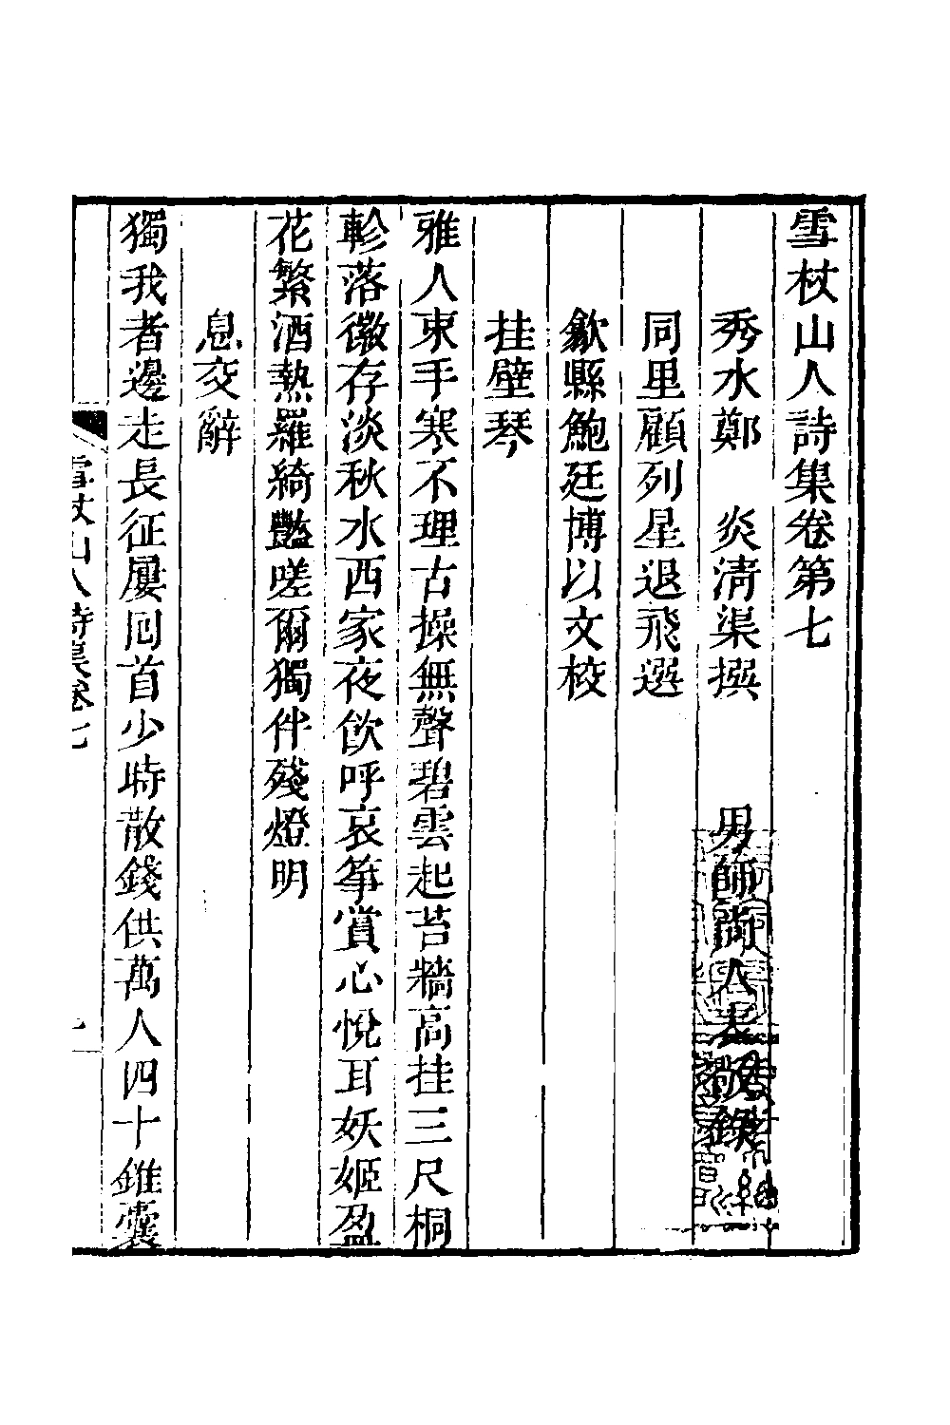 雪杖山人詩集卷第七
秀水鄭　炎清渠撰　男師尚人表掞錄
同里顧列星退飛選
歙縣鮑廷博以文校
挂壁琴
雅人束手寒不理古操無聲碧雲起苔牆高挂三尺桐
軫落徽存淡秋水西家夜飲呼哀箏賞心悅耳妖姬盈
花繁酒熱羅綺豔嗟爾獨伴殘燈明
息交辭
獨我者邊走長征屢回首少時散錢供萬人四十錐囊
雪杖山人詩集卷七